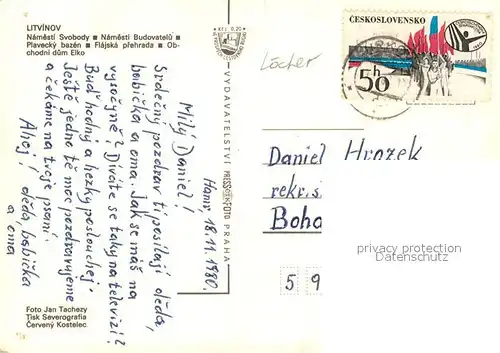 LITVÍNOV
Náměstí Svobody ■ Náměstí Budovatelů ■
Plavecký bazén ■ Flájská přehrada ■ Ob-
chodní dům Elko
Kčs 0,20
VYDAVATELSTVÍ PRESSFOTO PRAHA
Hamr 18.11.1980.
Milý Daniel!
Srdečný pozdrav ti posílají děda,
babička a oma. Jak se máš na
vysočyně? Díváte se taky na televizi?
Buď hodný a hezky poslouchej.
Ještě jedno tě moc pozdravujeme
a čekáme na tvoje psaní.
Ahoj! děda, babička
a oma
Foto Jan Tachezy
Tisk Severografia
Červený Kostelec
Löcher
ČESKOSLOVENSKO
50h
Daniel Hrozek
rekr. s
Boho
privacy protection
Datenschutz
5 9